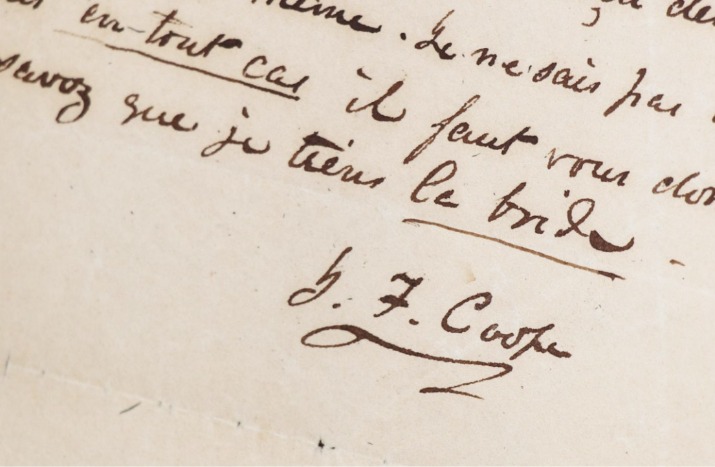 même. Je ne sais pas
en-tout cas il faut vous don
savez que je tiens la bride
J. F. Cooper